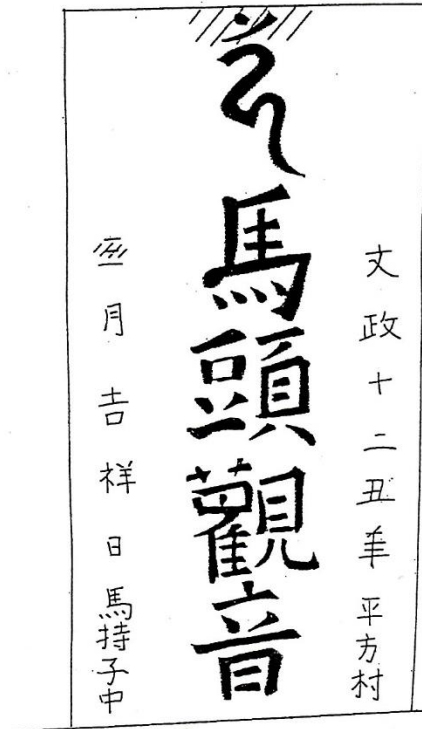 文政十二丑年 平方村
馬頭觀音
月吉祥日 馬持子中